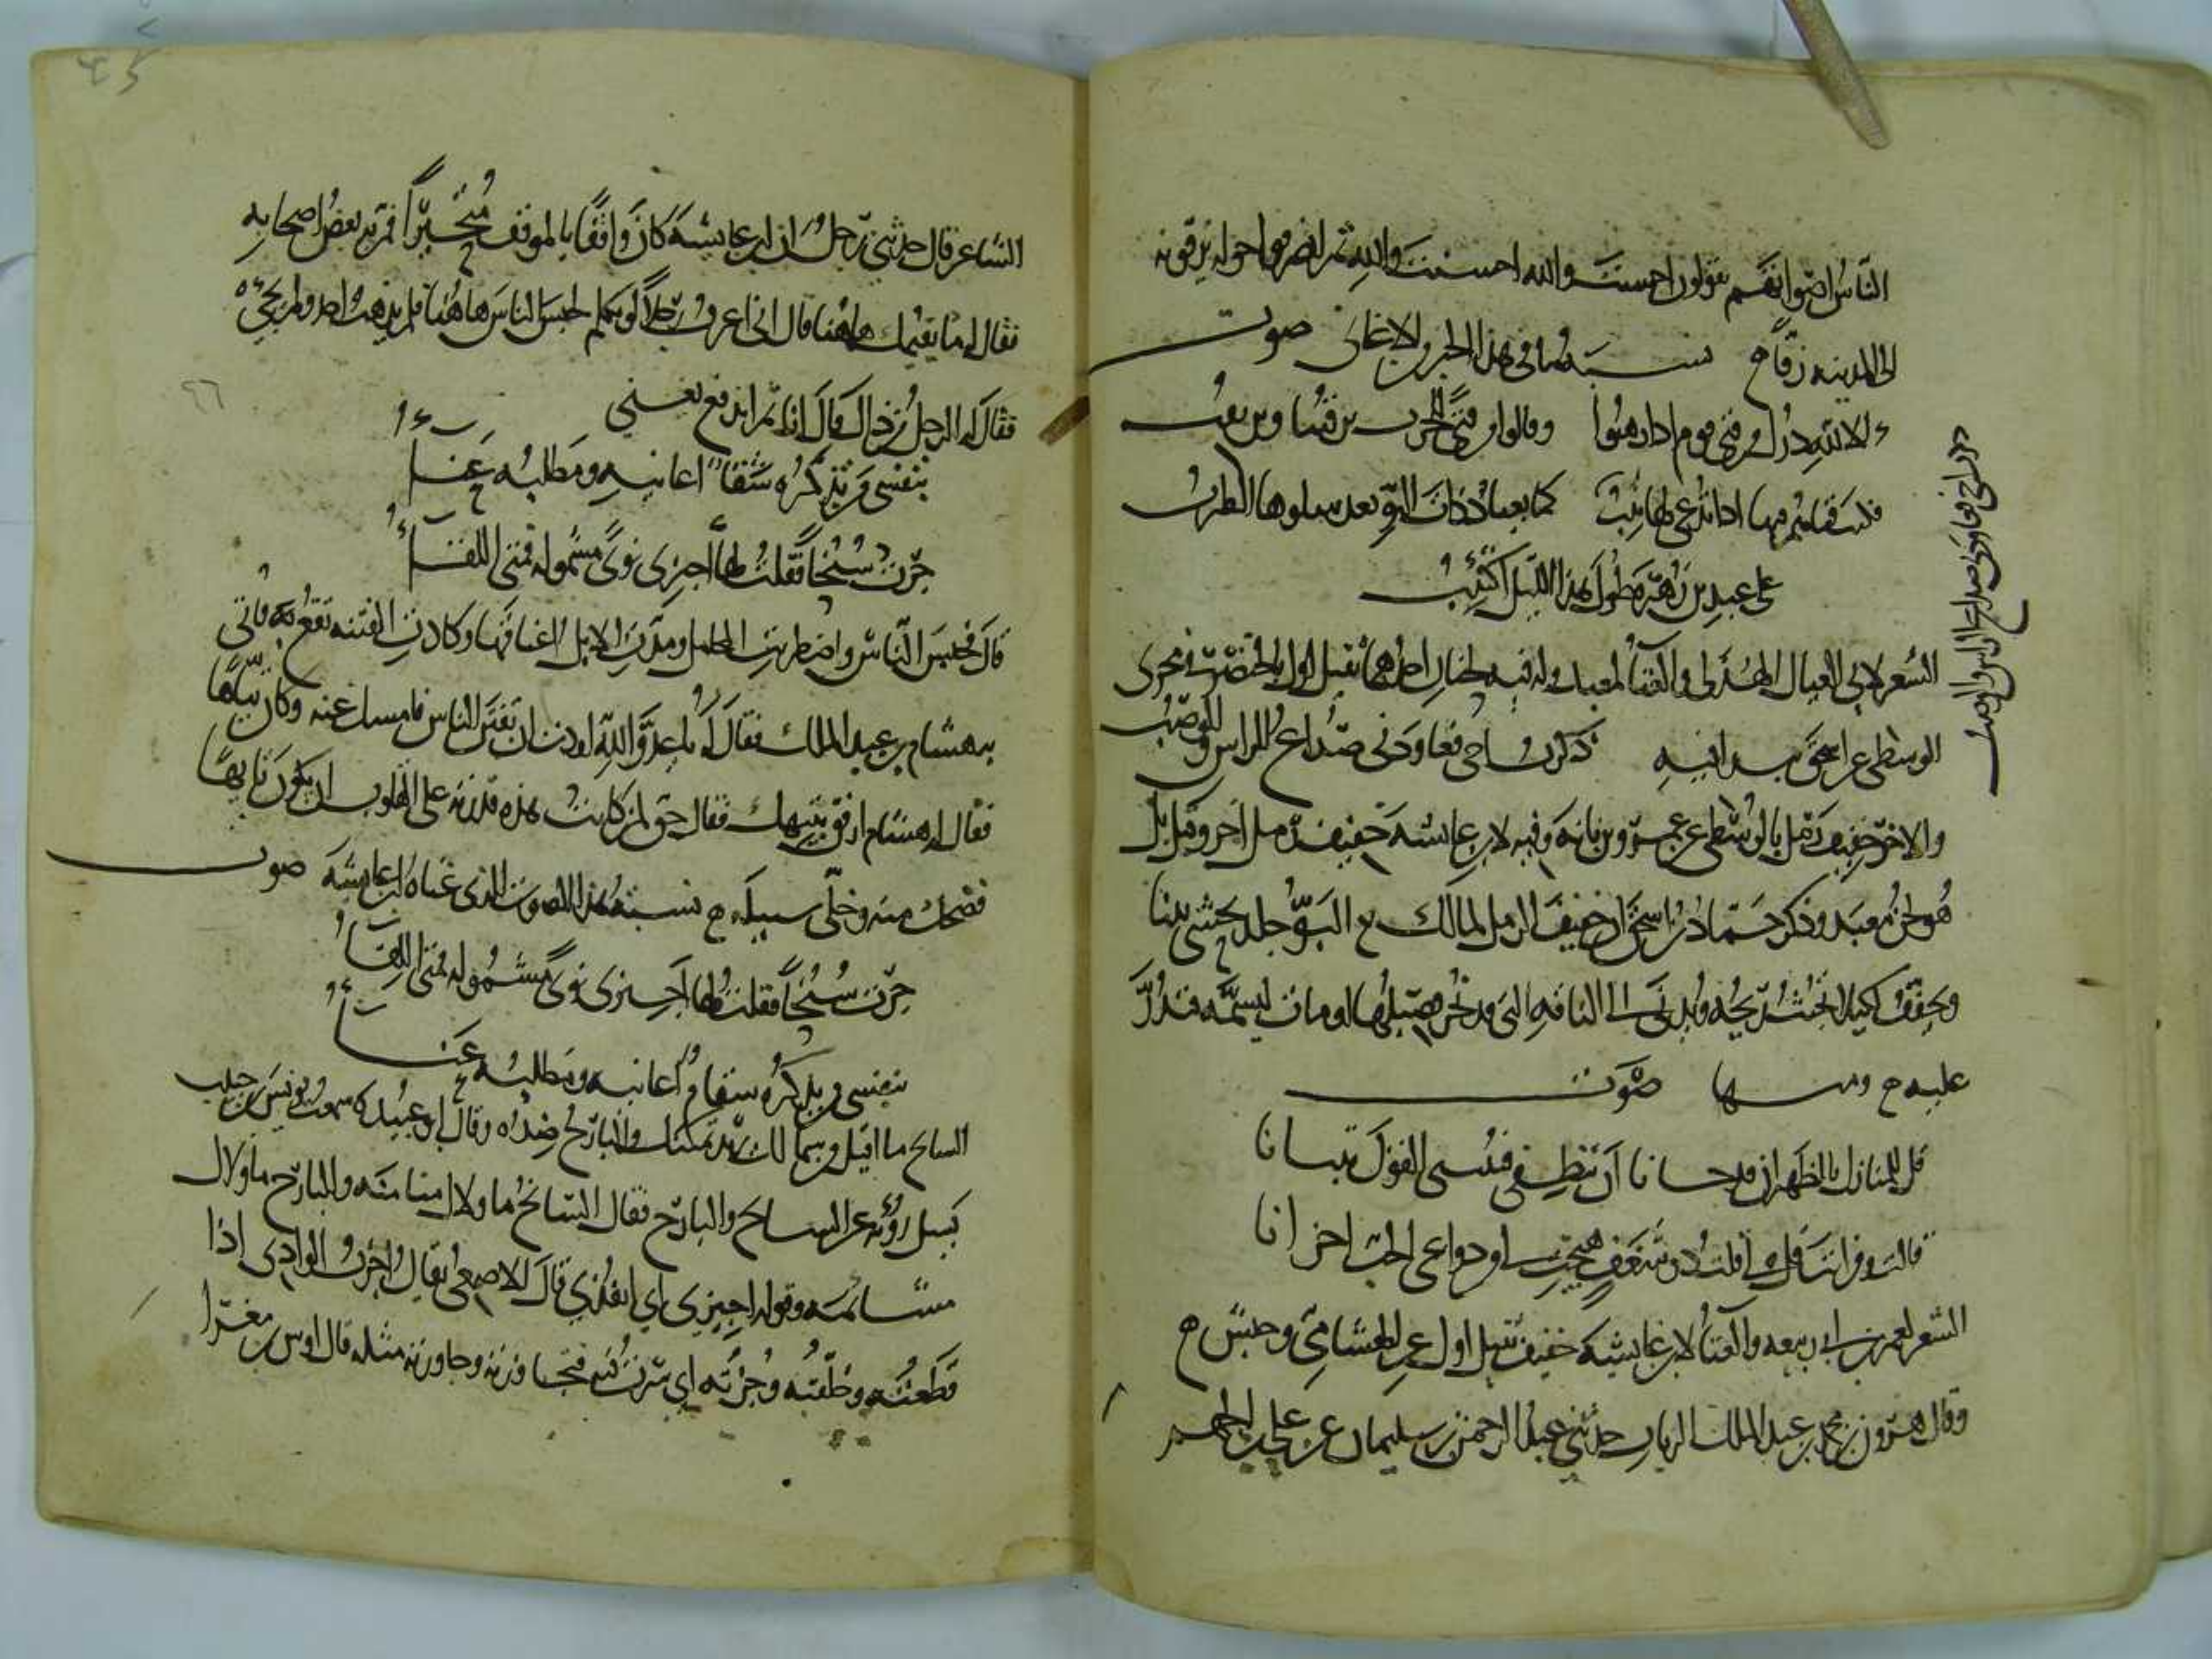 الناس اصواتهم يقولون احسنت والله احسنت والله ثم انصرفوا حوله يزفونه
الى المدينة زفا ح نسبة ما فى هذا الخبر من الاغانى صوت
الا لله درك من فتى قوم اذا رهبوا وقالوا من فتى للحرب يرقبنا ويرتقب
فكنت فتاهم فيها اذا تدعى لها تثب كما يعتاد ذات البو بعد سلوها الطرب
على عبد بن زهرة طول هذا الليل اكتئب
الشعر لابى العيال الهذلى والغناء لمعبد وله فيه لحنان احدهما ثقيل اول بالخنصر فى مجرى
الوسطى عن اسحق يبدا فيه ذكرت اخى فعاودنى صداع الراس والوصب
والاخر خفيف رمل بالوسطى عن عمرو بن بانة وفيه لابن عائشة خفيف رمل اخر وقيل بل
هو لحن معبد وذكر حماد بن اسحق ان خفيف الرمل لمالك ح البو جلد يحشى تبنا
ويجفف لكيلا تخبث ريحه ويدنى الى الناقة التى قد نحر فصيلها او مات لتشمه فتدر
عليه ح ومنها صوت
قل للمنازل بالظهران قد حانا ان تنطقى فتبينى القول تبيانا
قالت ومن انت قل لى قلت ذو شغف هيجت له من دواعى الحب احزانا
الشعر لعمر بن ابى ربيعة والغناء لابن عائشة خفيف ثقيل اول عن الهشامى وحبش ح
وقال هرون بن محمد بن عبد الملك الزيات حدثنى عبد الرحمن بن سليمان عن على بن الجهم
ذكرت اخى فعاودنى صداع الراس والوصب
الشاعر قال حدثنى رجل ان ابن عائشة كان واقفا بالموقف متحيرا فمر به بعض اصحابه
فقال له ما يقيمك هاهنا قال انى اعرف رجلا لو تكلم لحبس الناس هاهنا فلم يذهب احد ولم يجئ
فقال له الرجل ومن ذاك قال انا ثم اندفع يغنى
بنفسى من تذكره سقام اعانيه ومطلبه عناء
جرت سنحا فقلت لها اجيزى نوى مشمولة فمتى اللقاء
قال فحبس الناس واضطربت المحامل ومدت الابل اعناقها وكادت الفتنة تقع به فاتى
به هشام بن عبد الملك فقال له يا عدو الله اردت ان تفتن الناس فامسك عنه وكان تياها
فقال له هشام ارفق بتيهك فقال حق لمن كانت هذه قدرته على القلوب ان يكون تياها
فضحك منه وخلى سبيله ح نسبة هذا الصوت الذى غناه ابن عائشة صوت
جرت سنحا فقلت لها اجيزى نوى مشمولة فمتى اللقاء
بنفسى من تذكره سقام اعانيه ومطلبه عناء
السانح ما اقبل من شمالك يريد يمينك والبارح ضده وقال ابو عبيدة سمعت يونس بن حبيب
يسل رؤبة عن السانح والبارح فقال السانح ما ولاك ميامنه والبارح ما ولاك
مشائمه وقوله اجيزى اى انفذى قال الاصمعى يقال اجزت الوادى اذا
قطعته وخلفته وجزته اى سرت فيه فتجاوزته وجاوزته مثله قال اوس بن مغرا
٤٥
٩٦